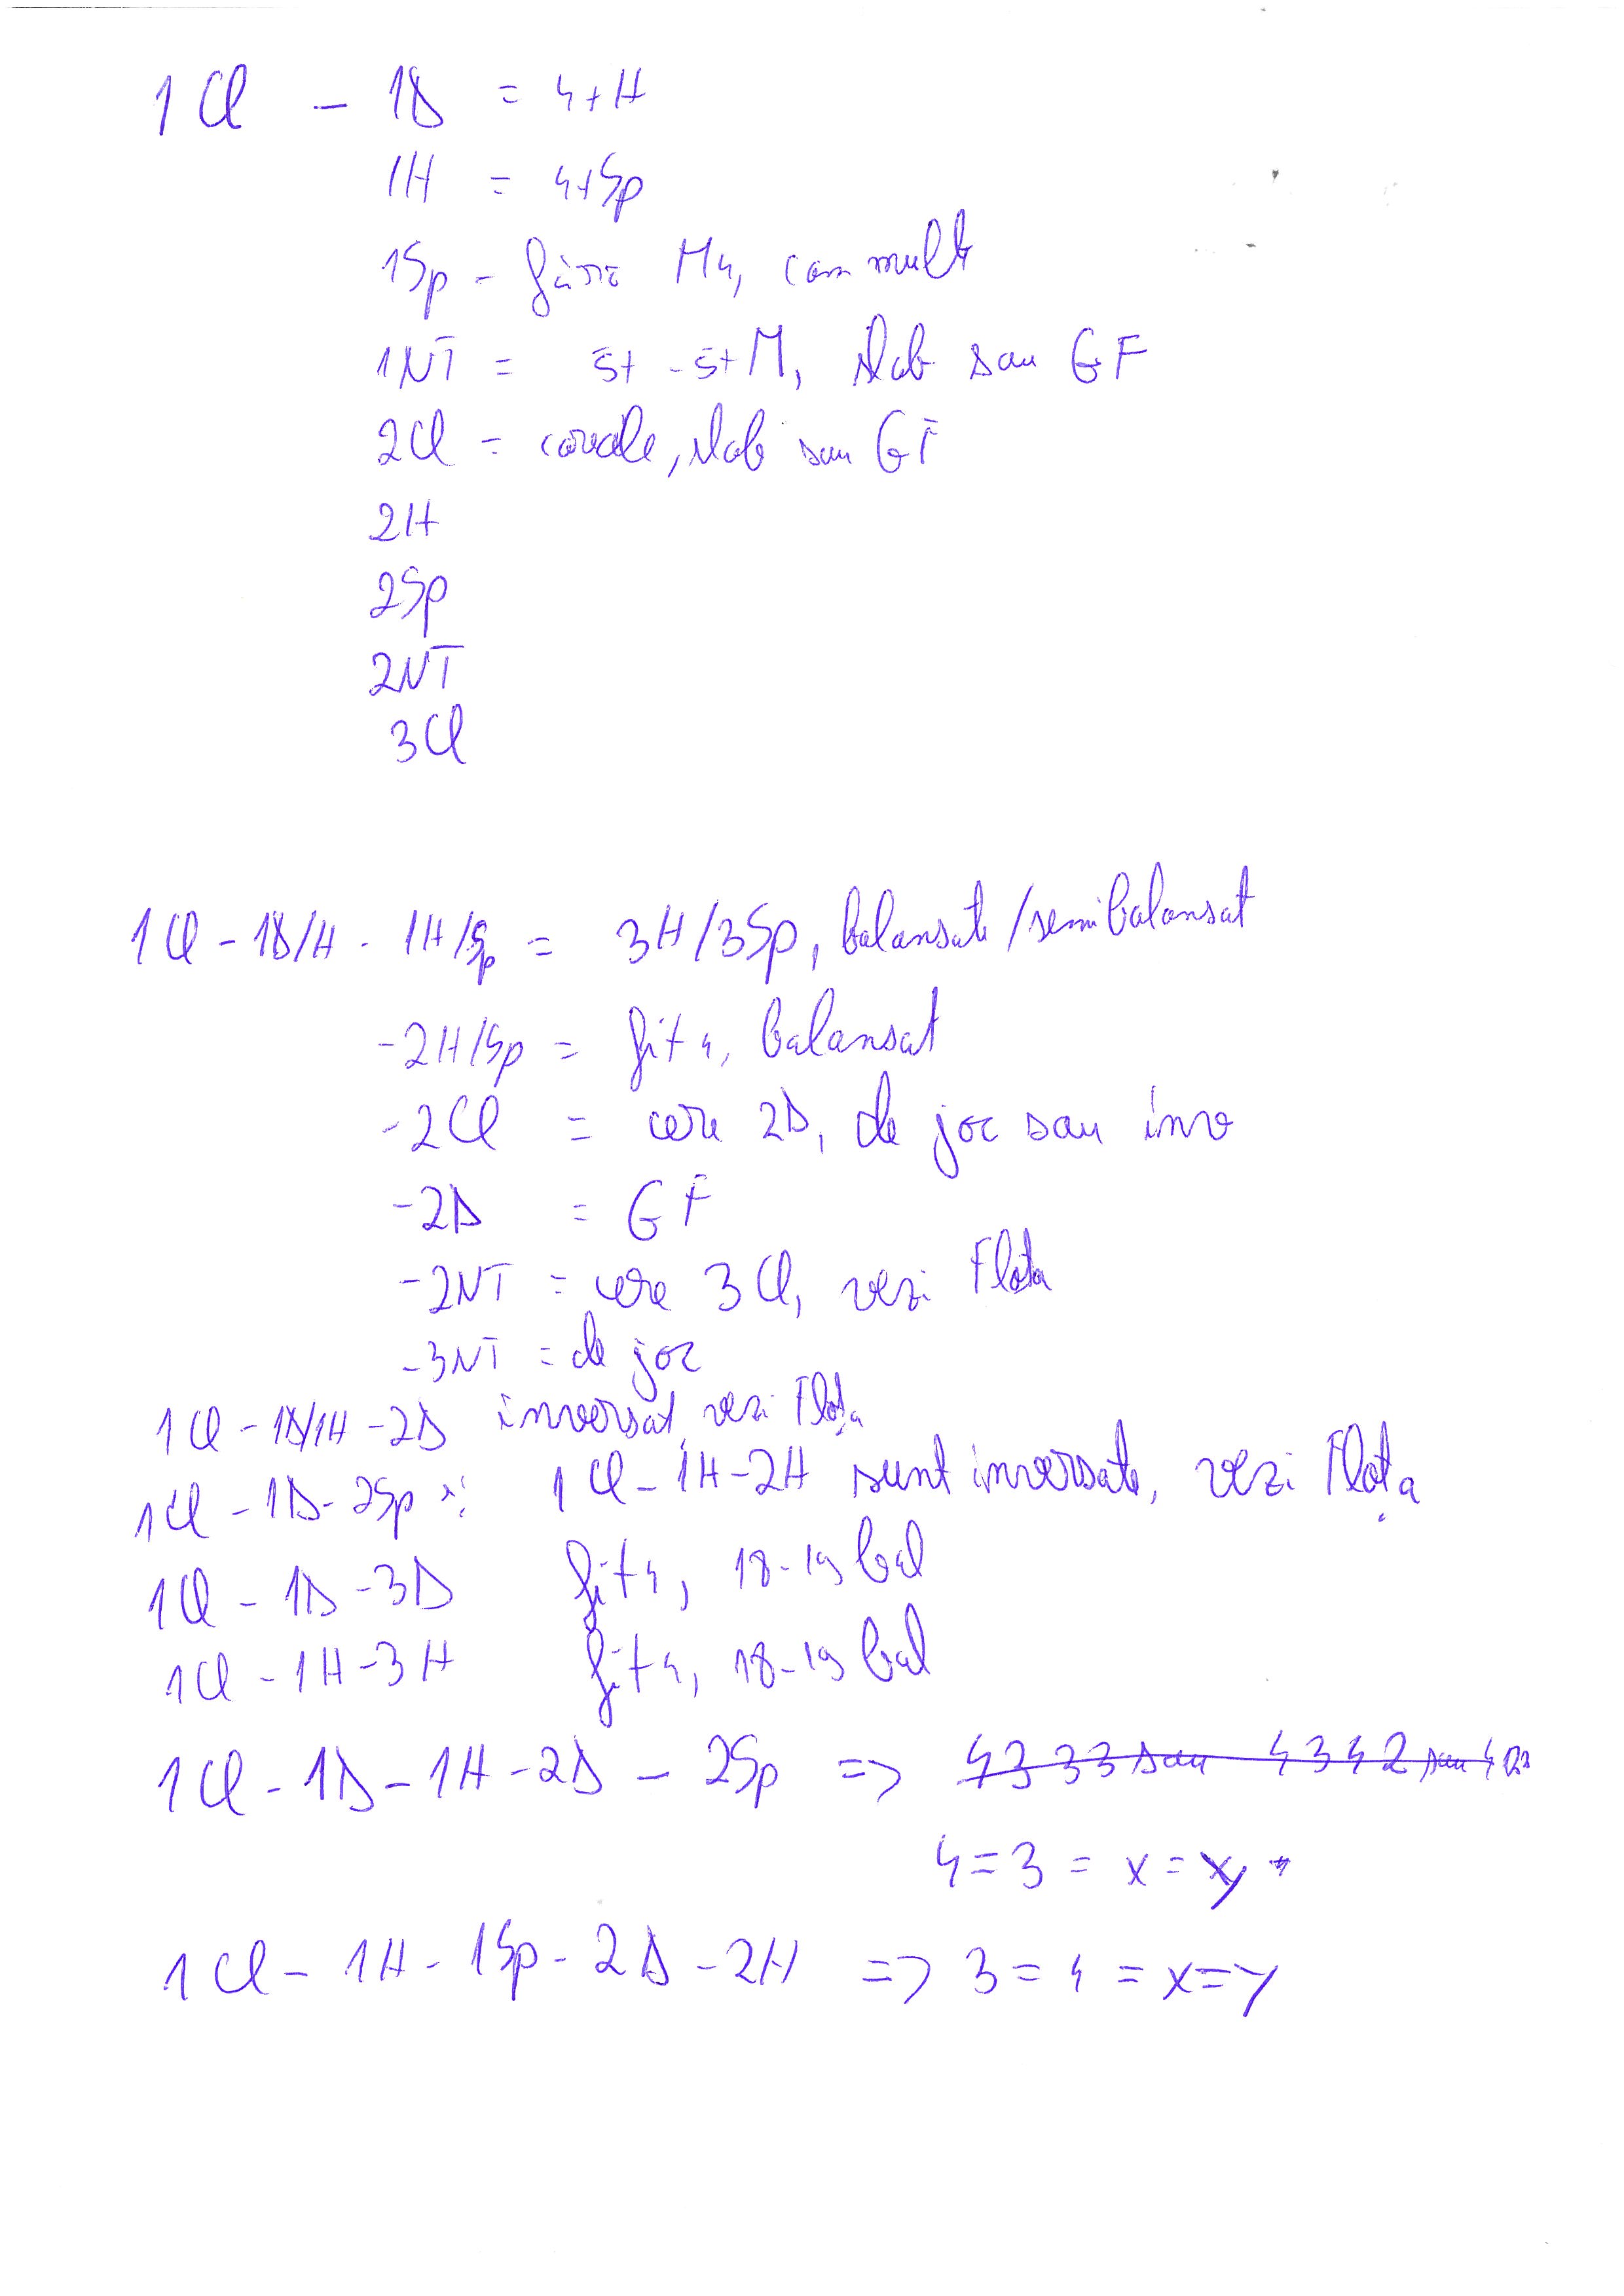 1Cl - 1D = 4+H
1H = 4+Sp
1Sp - fără M4, cam mult
1NT = 5+ - 5+M, slab sau GF
2Cl = carale, slab sau GF
2H
2Sp
2NT
3Cl
1Cl - 1D/H - 1H/Sp = 3H/3Sp, balansate/semibalansat
-2H/Sp = fit 4, balansat
-2Cl = cere 2D, de joc sau inv
-2D = GF
-2NT = cere 3Cl, vezi Flota
-3NT = de joc
1Cl - 1D/1H - 2D inversat, vezi Flota
1Cl - 1D - 2Sp și 1Cl - 1H - 2H sunt inversate, vezi Flota
1Cl - 1D - 3D fit 4, 18-19 bal
1Cl - 1H - 3H fit 4, 18-19 bal
1Cl - 1D - 1H - 2D - 2Sp => 4333 sau 4342 sau
4=3=x=y
1Cl - 1H - 1Sp - 2D - 2H => 3=4=x=y